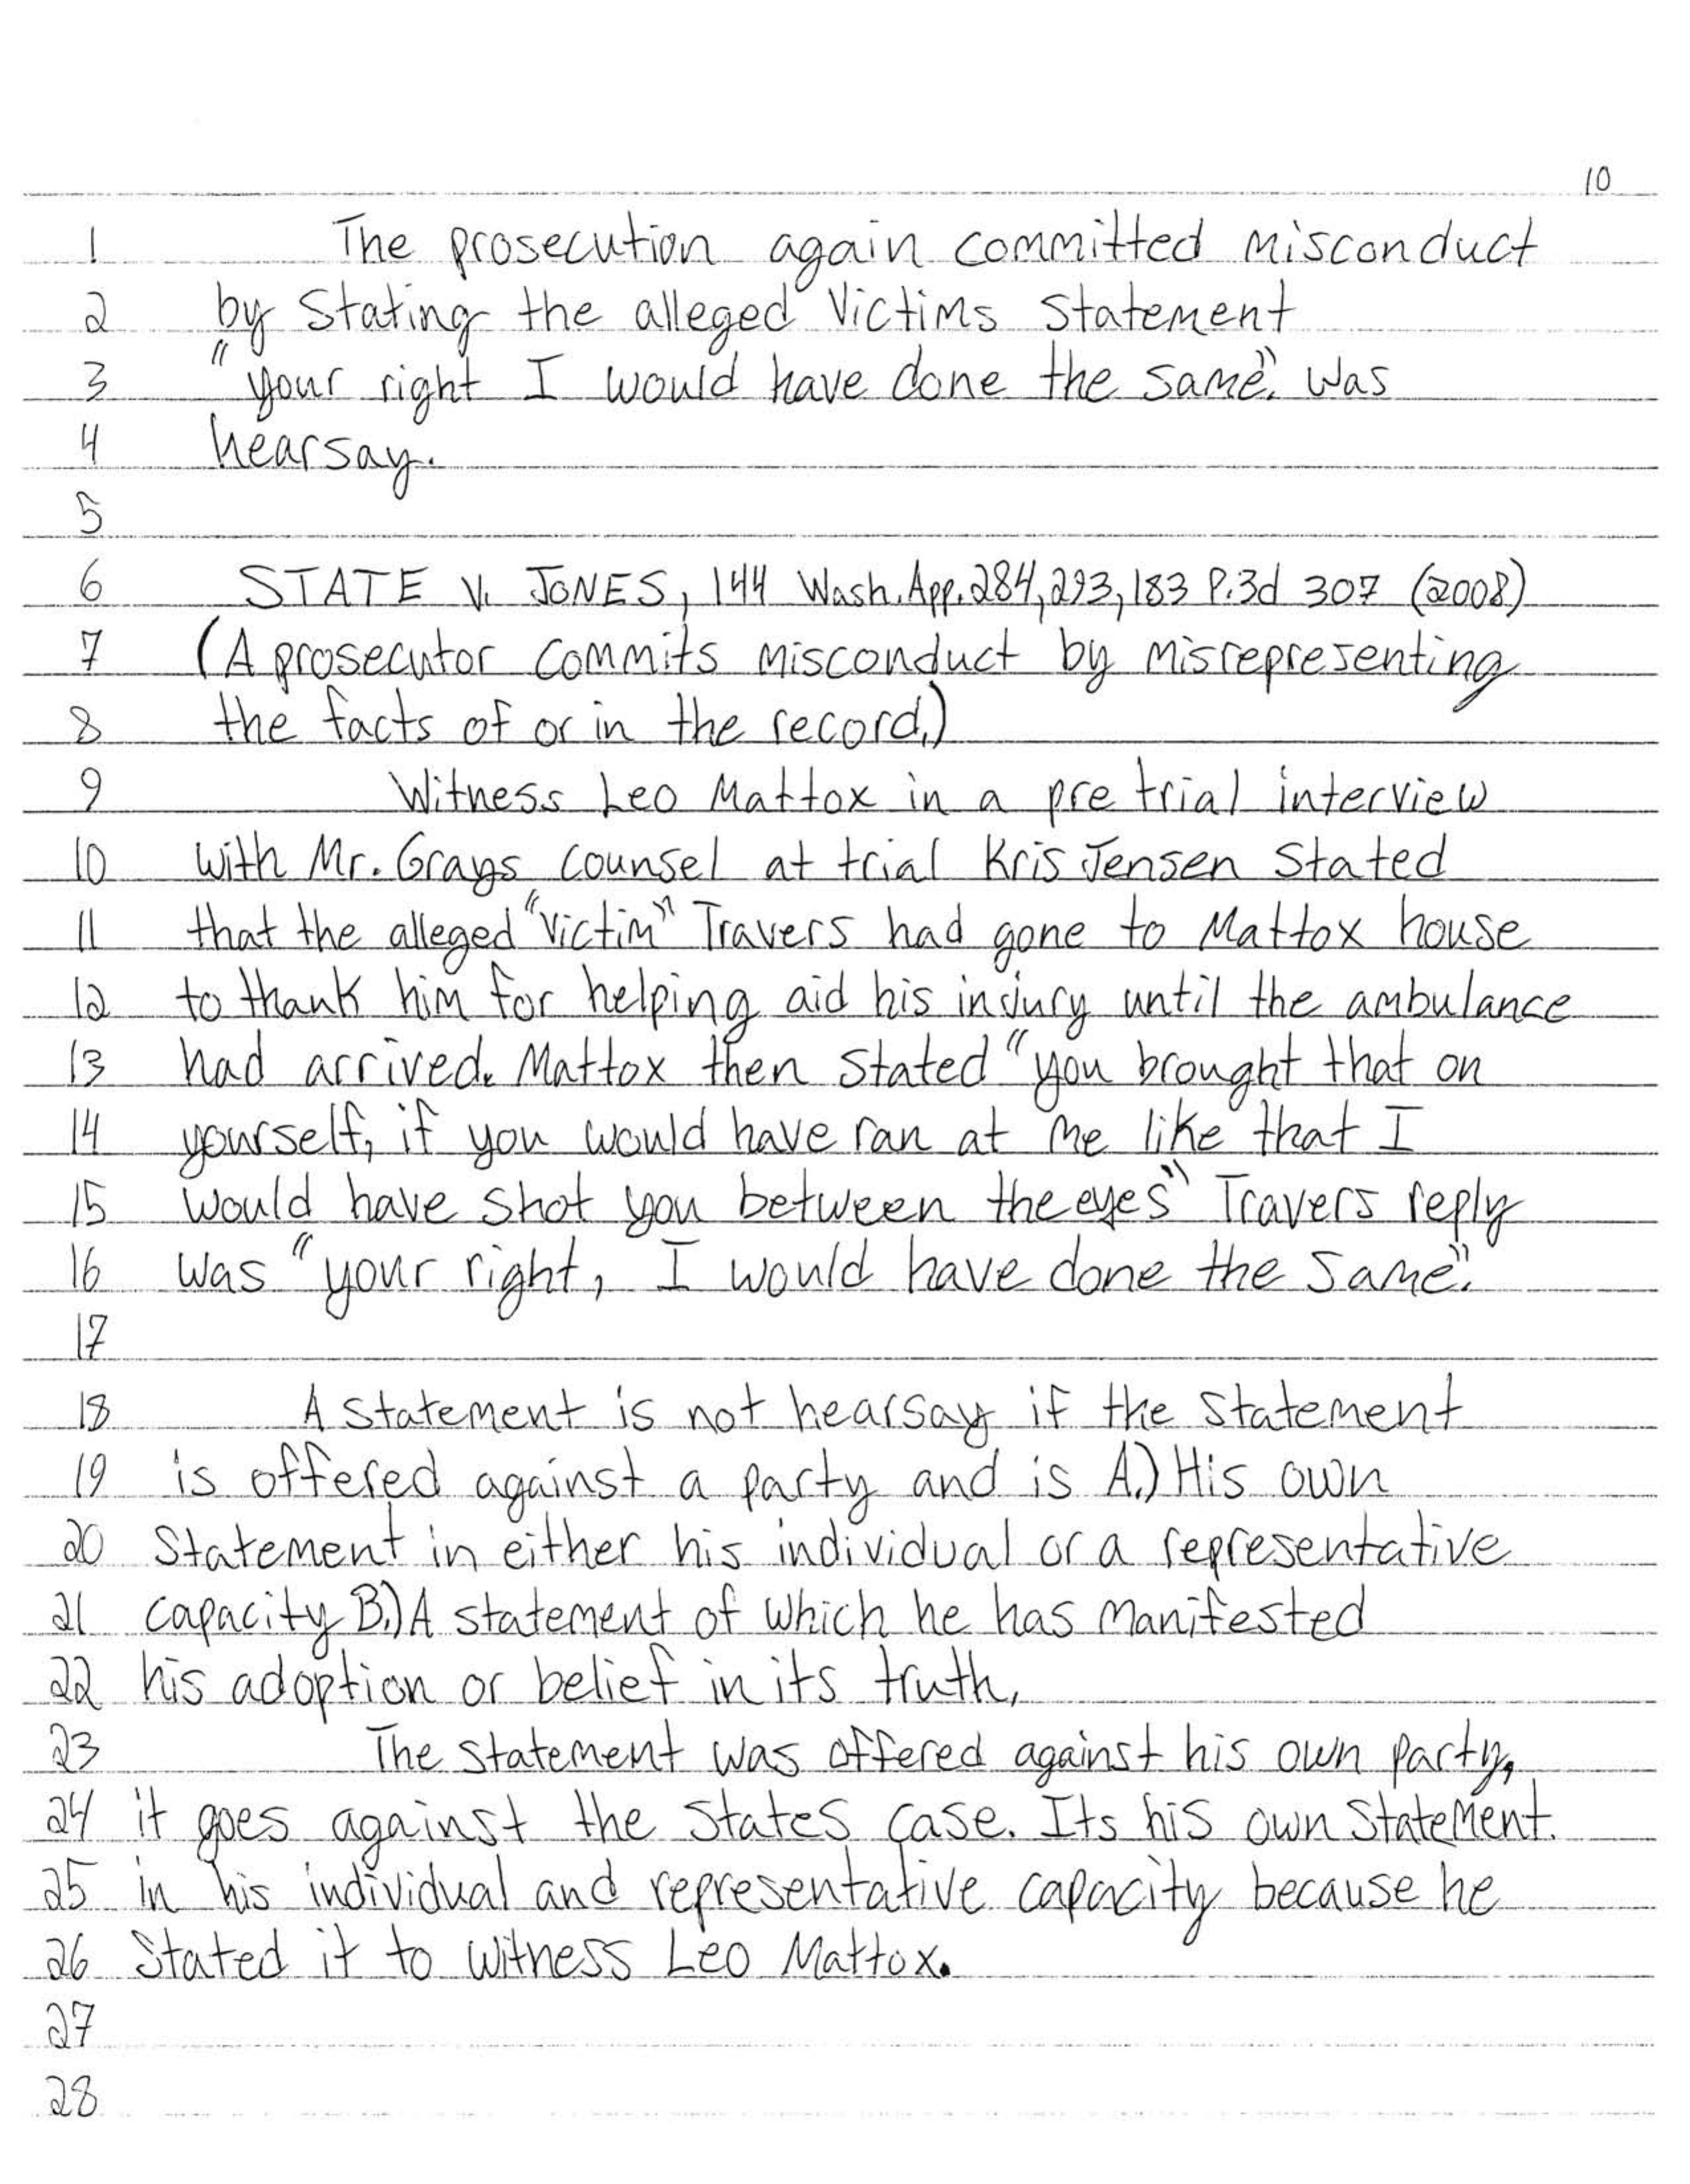 10
1 The prosecution again committed misconduct
2 by Stating the alleged Victims Statement
3 "your right I would have done the same". was
4 hearsay.
5
6 STATE V. JONES, 144 Wash.App.284,293,183 P.3d 307 (2008)
7 (A prosecutor commits misconduct by misrepresenting
8 the facts of or in the record.)
9 Witness Leo Mattox in a pre trial interview
10 with Mr. Grays counsel at trial Kris Jensen Stated
11 that the alleged "victim" Travers had gone to Mattox house
12 to thank him for helping aid his injury until the ambulance
13 had arrived. Mattox then stated "you brought that on
14 yourself, if you would have ran at me like that I
15 would have shot you between the eyes" Travers reply
16 was "your right, I would have done the same".
17
18 A statement is not hearsay if the statement
19 is offered against a party and is A.) His own
20 Statement in either his individual or a representative
21 capacity B.) A statement of which he has manifested
22 his adoption or belief in its truth,
23 The statement was offered against his own party,
24 it goes against the States case. Its his own statement.
25 in his individual and representative capacity because he
26 Stated it to witness Leo Mattox.
27
28